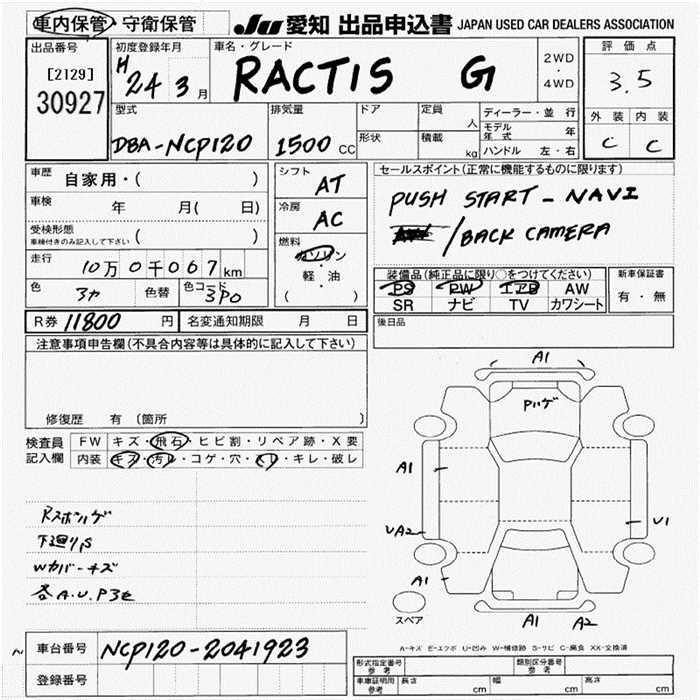 車内保管・守衛保管
JU 愛知 出品申込書 JAPAN USED CAR DEALERS ASSOCIATION
出品番号
[2129]
30927
初度登録年月
H 24 3 月
車名・グレード
RACTIS G
2WD
・
4WD
評価点
3.5
外装 内装
C C
型式
DBA-NCP120
排気量
1500 CC
ドア
形状
定員
人
積載
kg
ディーラー・並行
モデル年式 年
ハンドル 左・右
車歴 自家用・( )
車検 年 月( 日)
受検形態
車検付きのみ記入して下さい ( )
走行 10万0千067km
色 3カ 色替 色コード 3P0
シフト
AT
冷房
AC
燃料
ガソリン
・
軽・油
( )
セールスポイント(正常に機能するものに限ります)
PUSH START - NAVI
/BACK CAMERA
装備品(純正品に限り○をつけてください)
PS PW エアB AW
SR ナビ TV カワシート
新車保証書
有・無
R券 11800 円 名変通知期限 月 日
後日品
注意事項申告欄(不具合内容等は具体的に記入して下さい)
修復歴 有 (箇所 )
検査員
記入欄
FW キズ・飛石・ヒビ割・リペア跡・X要
内装 キズ・汚レ・コゲ・穴・スレ・キレ・破レ
Rスポハゲ
下廻りS
Wカバーキズ
各A.U.P3セ
A1
Pハゲ
A1
UA2
U1
A1
A1 A2
スペア
A-キズ E-エクボ U-凹み W-補修跡 S-サビ C-腐食 XX-交換済
車台番号 NCP120-2041923
登録番号
形式指定番号
参考
類別区分番号
参考
車庫証明用
参考
長さ cm 幅 cm 高さ cm